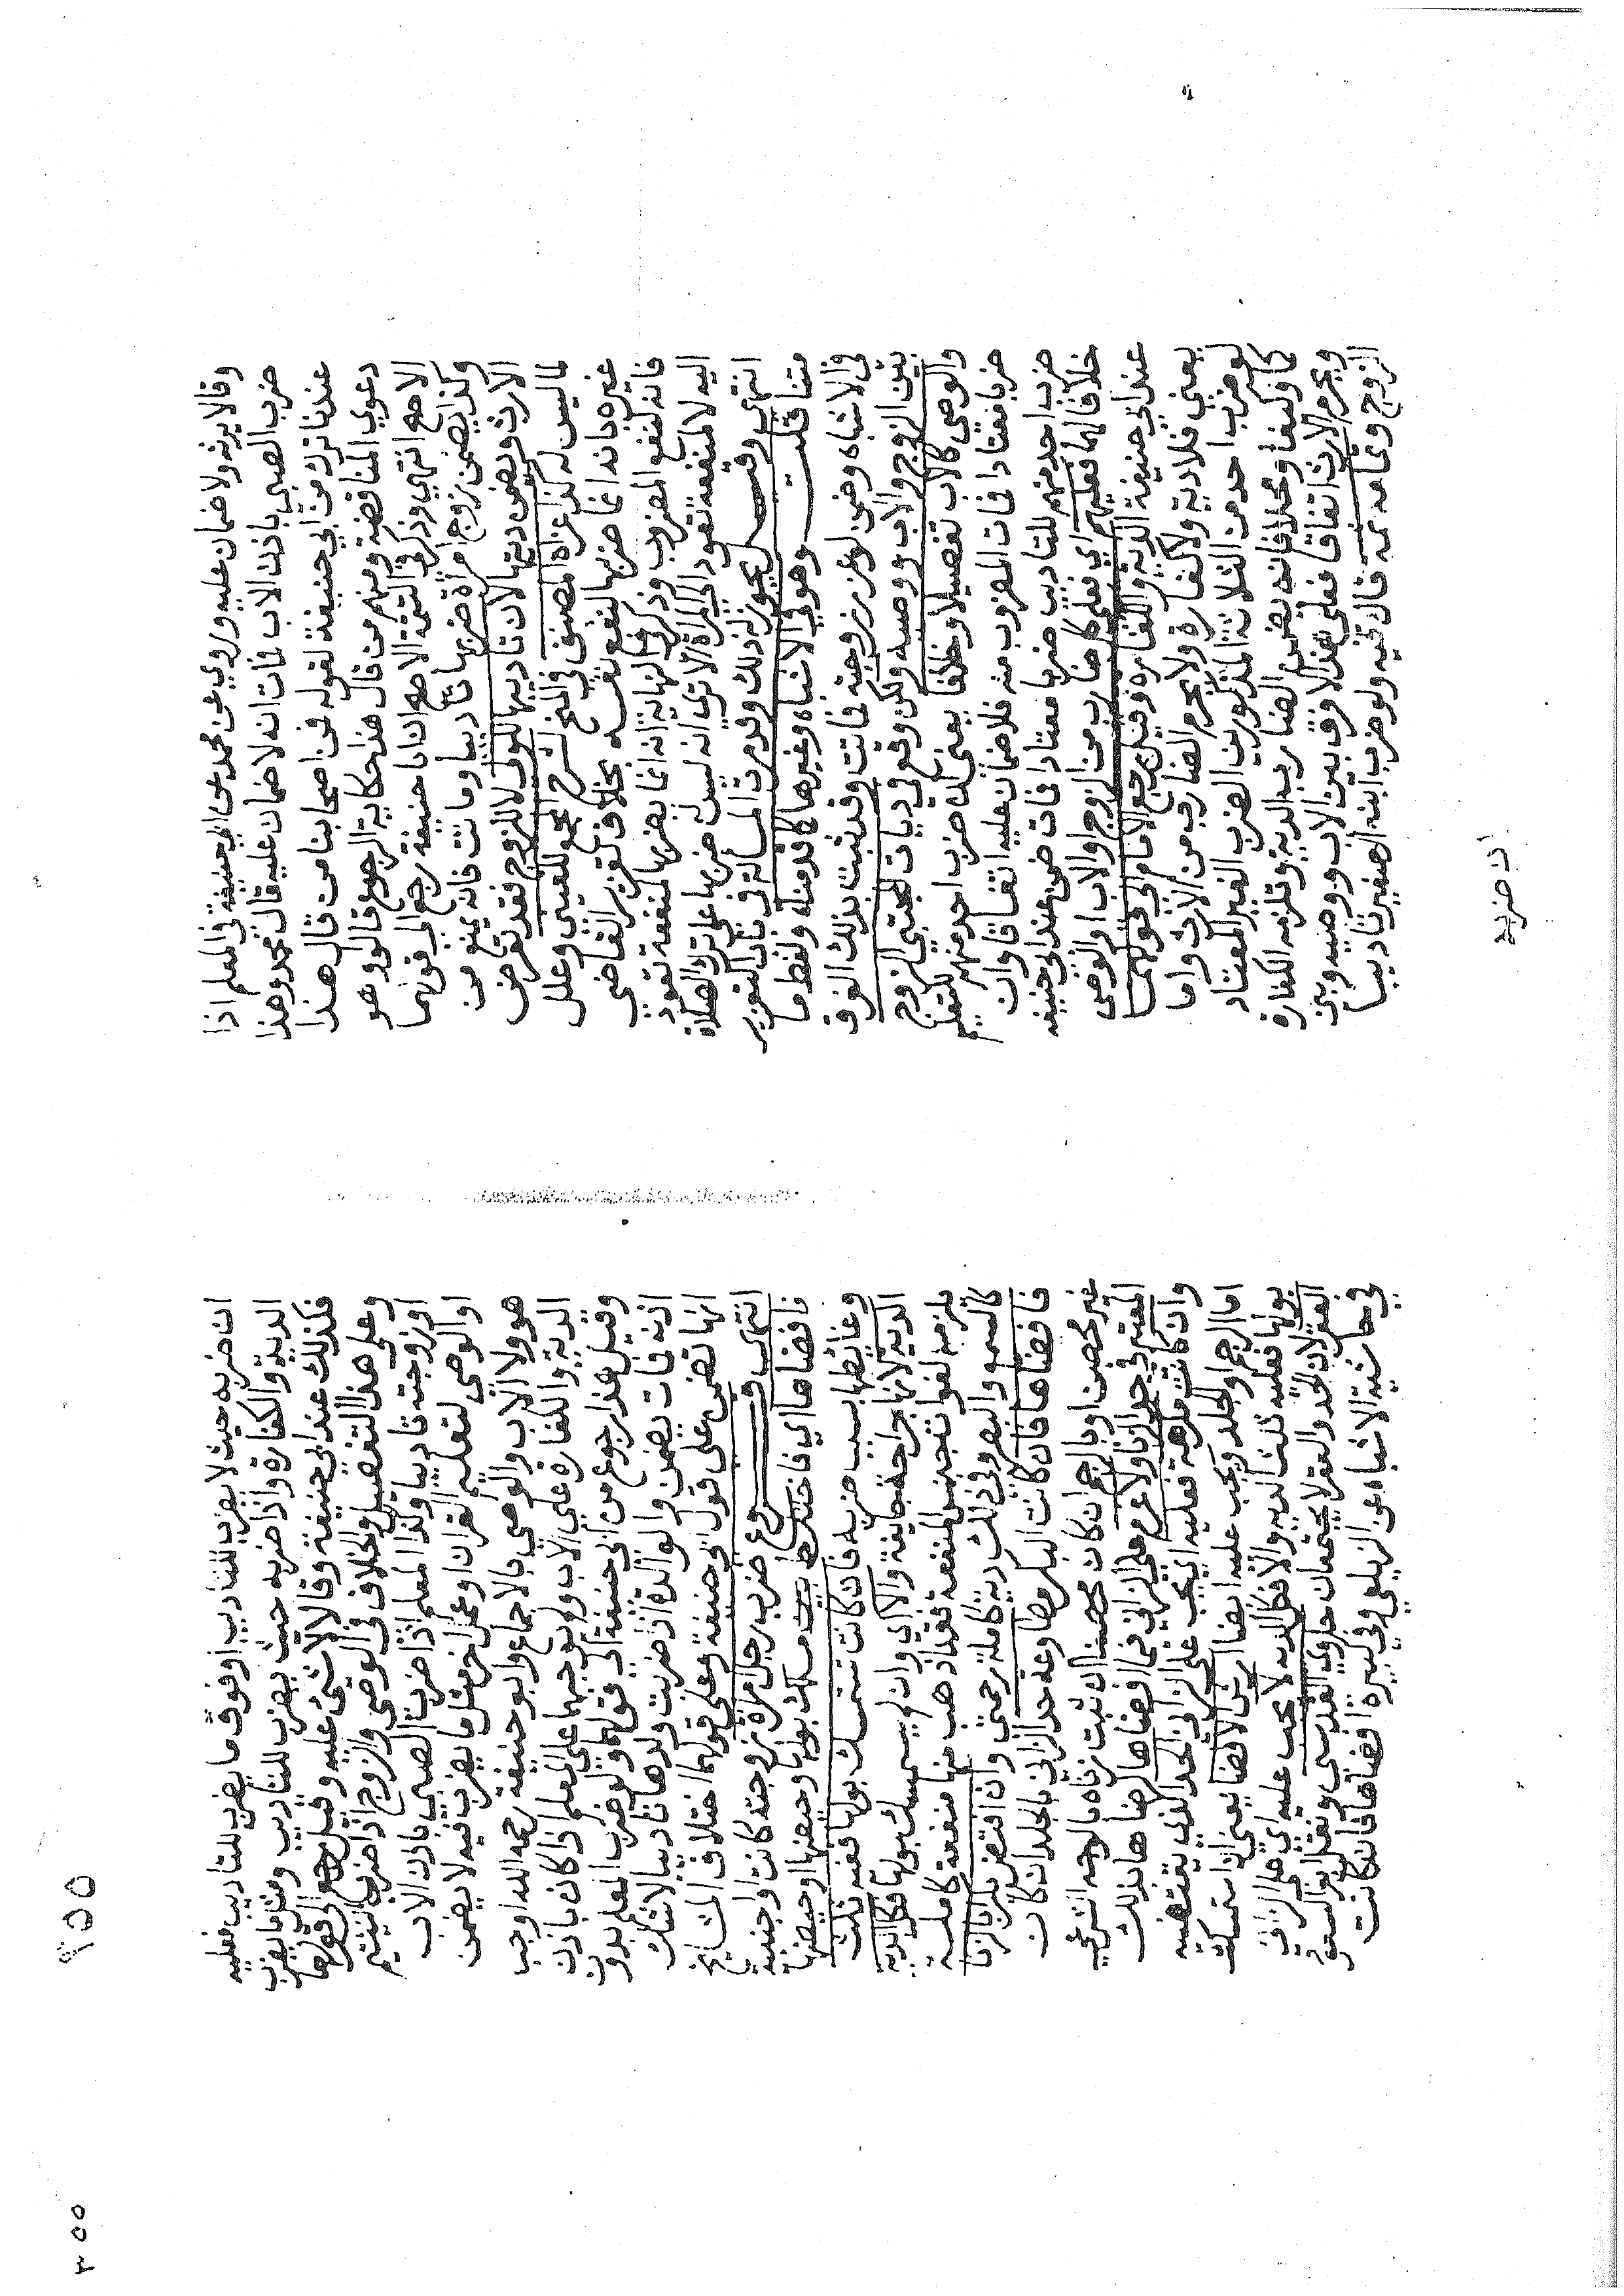 وقالا يرثه ولا ضمان عليه وروي عن محمد عن ابي حنيفة في المعلم اذا
ضرب الصبي باذن الاب فمات انه لا ضمان عليه قال محمد وهذا
عندنا ترك من ابي حنيفة لقوله فمن اصحابنا من قال هذا
دعوي المناقضة ومنهم من قال هذا حكاية الرجوع قالوا وهو
الاصح انتهي وذكر في التتمة الاصح ان ابا حنيفة رجع الي قولهما
وكذا يضمن زوج امرأة ضربها تأديبا وماتت فانه يمنع من
الارث ويضمن ديتها لان تاديبها للولي لا للزوج فقد تعرض
لما ليس له كذا عزاه المصنف في المنح لشرح المجمع للعيني وعلل
غيره بانه انما ضربها لنفع نفسه بخلاف تعزير القاضي
فانه لنفع المضروب وذكر في النهاية انه انما يضربها لمنفعة تعود
اليه لا لمنفعة تعود الي المرأة الا تري انه ليس له ضربها علي ترك الصلاة
انتهي وقيل يجوز له ذلك وقدم ت المسألة في باب التعزير
متنا قلت وهو في الاشباه وغيرها كما قدمناه ولفظ ما
في الاشباه وضمن لو عزر زوجته فماتت وقد ثبت بذلك الفرق
بين الزوج والاب ووصيه ولكن وقع في ديات المجتبي الزوج
والوصي كالاب تفصيلا وخلافا يعني ضرب احد منهم للتعليم
ضربا معتادا فمات المضروب منه فلا ضمان عليه اتفاقا وان
ضرب احد منهم للتاديب ضربا معتادا فمات ضمن عند ابي حنيفة
خلافا لهما فعليهم اي فعلي كل ضارب من الزوج والاب والوصي
عند ابي حنيفة الدية والكفارة وقيل رجع الامام الي قولهما
يعني فلا دية ولا كفارة ولا يحرم الضارب من الارث واما
لو ضرب احد من الثلاثة المذكورين الضرب الغير المعتاد
كما وكيفا ومحلا فانه يضمن الضارب الدية وتلزمه الكفارة
ويحرم الارث اتفاقا فعلي هذا لا فرق بين الاب ووصيه وبين
الزوج وتمامه ثمة قال فيه ولو ضرب ابنه الصغير تاديبا
ان ضربه
ان ضربه حيث لا يضرب للتاديب او فوق ما يضرب للتاديب فعليه
الدية والكفارة واذا ضربه حيث يضرب للتاديب ومثل ما يضرب
فكذلك عند ابي حنيفة وقالا لا شئ عليه وقيل رجع الي قولهما
وعلي هذا التفصيل والخلاف في الوصي والزوج اذا ضرب اليتيم
او زوجته تاديبا وكذا المعلم اذا ضرب الصبي باذن الاب
او الوصي لتعليم القران او عمل اخر مثل ما يضرب فيه لا يضمن
هو ولا الاب والوصي بالاجماع وابو حنيفة رحمه الله اوجب
الدية والكفارة علي الاب ولم يوجبهما علي المعلم اذا كان باذن
وقيل هذا رجوع من ابي حنيفة الي قولهما ولو ضرب المعلم بدون
اذنه فمات يضمن والوالدة اذا ضربت ولدها تاديبا لا شك
انها تضمن علي قول ابي حنيفة وعلي قولهما اختلاف المشايخ
انتهي فروع ضرب رجل امرأة زوجته كانت او اجنبية
فافضاها اي فاختلط مسلك بولها وحيضها او حيضها
وغائطها بسبب ضربه فان كانت تستمسك بولها ففيه ثلث
الدية لانها جراحة جايفة والا اي وان لم يستمسك بولها فكل الدية
تلزمه لفوات جنس المنفعة فقد اذهب منها منفعة كاملة
كالشم والبصر وفي ذلك دية كاملة رحمتي وان افتض بكرا بالزنا
فافضاها فان كانت البكر مطاوعة حد الزاني بالجلد ان كان
غير محصن او بالرجم ان كان محصنا ان ثبت زناه بالوجه الشرعي
المعتبر في حد الزنا ولا غرم علي الزاني في افضاها لرضاها بذلك
وان كانت مكرهة فعليه اي يجب علي الزاني الحد الذي يقتضيه
اما الرجم او الجلد ويجب عليه ايضا ارش الافضا يعني ان استمسك
بولها فعليه ثلث الدية والا فكل الدية لا يجب عليه اي علي الزاني
العقر لان الحد والعقر لا يجتمعان حاوي القدسي ونقل ابو السعود
في حاشية الاشباه عن الزيلعي وفي كبيرة افضاها فان كانت
٢٥٥
٣٠٠